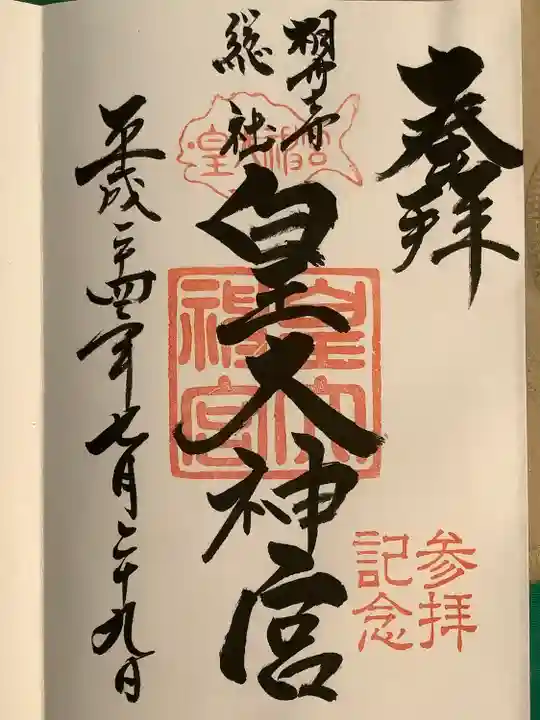 奉拝
参拝
記念
総社
皇大神宮
皇大神宮
皇大神宮
平成二十四年七月二十九日